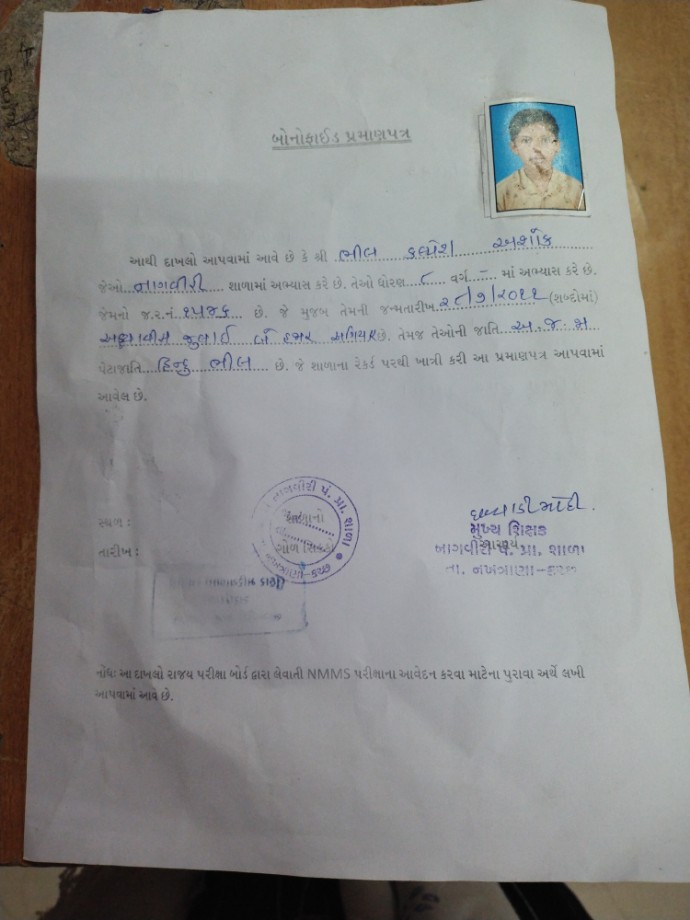 બોનોફાઈડ પ્રમાણપત્ર
આથી દાખલો આપવામાં આવે છે કે શ્રી ભીલ કલ્પેશ અશોક
જેઓ નાગવીરી શાળામાં અભ્યાસ કરે છે. તેઓ ધોરણ ૮ વર્ગ - માં અભ્યાસ કરે છે.
જેમનો જ.ર.નં. ૧૫૪૬ છે. જે મુજબ તેમની જન્મતારીખ ૨૮/૭/૨૦૧૧ (શબ્દોમાં)
અઠ્ઠાવીસ જુલાઈ બે હજાર અગિયાર છે. તેમજ તેઓની જાતિ અ.જ.જા
પેટાજાતિ હિન્દુ ભીલ છે. જે શાળાના રેકર્ડ પરથી ખાત્રી કરી આ પ્રમાણપત્ર આપવામાં
આવેલ છે.
નાગવીરી પં. પ્રા. શાળા
શાળાનો
ગોળ સિક્કો
નખત્રાણા-કચ્છ
સ્થળ :
તારીખ :
મુખ્ય શિક્ષક
આચાર્ય
નાગવીરી પં. પ્રા. શાળા
તા. નખત્રાણા-કચ્છ
નોંધઃ આ દાખલો રાજ્ય પરીક્ષા બોર્ડ દ્વારા લેવાતી NMMS પરીક્ષાના આવેદન કરવા માટેના પુરાવા અર્થે લખી
આપવામાં આવે છે.